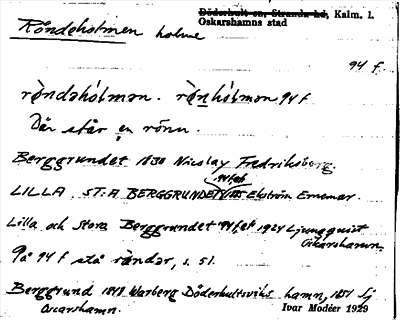 Döderhult sn, Stranda hd, Kalm. l.
Oskarshamns stad
Rönneholmen holme
94 f.
ròndəhólmən. rònhólmən 94 f
Där står en rönn.
Berggrundet 1830 Nicolay Fredriksberg.
94 f etc
LILLA ST:A BERGGRUNDET Ekström Ernemar.
Lilla och Stora Berggrundet 94 f, etc 1924 Ljungquist
Oskarshamn.
på 94 f stå ròndər, s. 51.
Berggrund 1848 Warberg Döderhultsviks hamn, 1851 Sj
Oscarshamn.
Ivar Modéer 1929